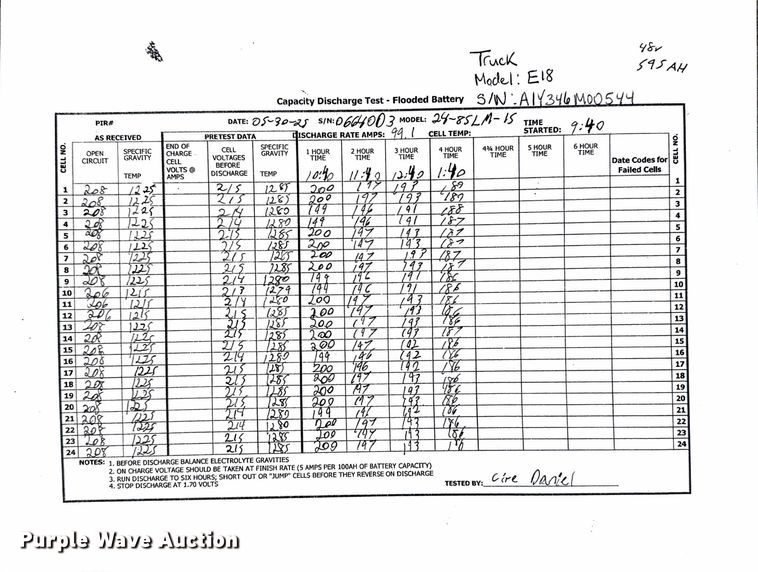 Truck
48v
Model: E18
595 AH
Capacity Discharge Test - Flooded Battery
S/N: A1Y346M00544
PIR#
DATE: 05-30-25 S/N: 066U0D3 MODEL: 24-85LM-15 TIME STARTED: 9:40
AS RECEIVED PRETEST DATA DISCHARGE RATE AMPS: 99.1 CELL TEMP:
CELL NO. OPEN CIRCUIT SPECIFIC GRAVITY TEMP END OF CHARGE CELL VOLTS @ AMPS CELL VOLTAGES BEFORE DISCHARGE SPECIFIC GRAVITY TEMP 1 HOUR TIME 10:40 2 HOUR TIME 11:40 3 HOUR TIME 12:40 4 HOUR TIME 1:40 4¾ HOUR TIME 5 HOUR TIME 6 HOUR TIME Date Codes for Failed Cells CELL NO.
1 208 1225 215 1285 200 197 193 189 1
2 208 1225 215 1285 200 197 193 189 2
3 208 1225 214 1280 199 196 191 188 3
4 208 1225 214 1280 199 196 191 187 4
5 208 1225 215 1285 200 197 193 187 5
6 208 1225 215 1285 200 197 193 187 6
7 208 1225 215 1285 200 197 193 187 7
8 208 1225 215 1285 200 197 193 187 8
9 208 1225 214 1280 199 196 191 186 9
10 206 1215 213 1279 199 196 191 186 10
11 206 1215 214 1280 200 197 193 186 11
12 206 1215 215 1285 200 197 193 186 12
13 208 1225 215 1285 200 197 193 186 13
14 208 1225 215 1285 200 197 193 187 14
15 208 1225 215 1285 200 197 192 186 15
16 208 1225 214 1280 199 196 192 186 16
17 208 1225 215 1285 200 196 192 186 17
18 208 1225 215 1285 200 197 193 186 18
19 208 1225 215 1285 200 197 193 186 19
20 208 1225 215 1285 200 197 193 186 20
21 208 1225 214 1280 199 196 192 186 21
22 208 1225 214 1280 200 197 193 186 22
23 208 1225 215 1285 200 197 193 186 23
24 208 1225 215 1285 200 197 193 24
NOTES: 1. BEFORE DISCHARGE BALANCE ELECTROLYTE GRAVITIES
2. ON CHARGE VOLTAGE SHOULD BE TAKEN AT FINISH RATE (5 AMPS PER 100AH OF BATTERY CAPACITY)
3. RUN DISCHARGE TO SIX HOURS; SHORT OUT OR "JUMP" CELLS BEFORE THEY REVERSE ON DISCHARGE
4. STOP DISCHARGE AT 1.70 VOLTS
TESTED BY: Cire Daniel
Purple Wave Auction